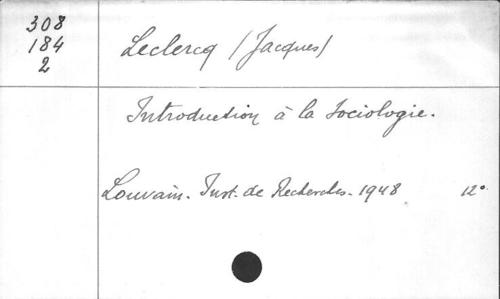 308
184
2
Leclercq (Jacques)
Introduction à la Sociologie.
Louvain. Inst. de Recherches. 1948 12°